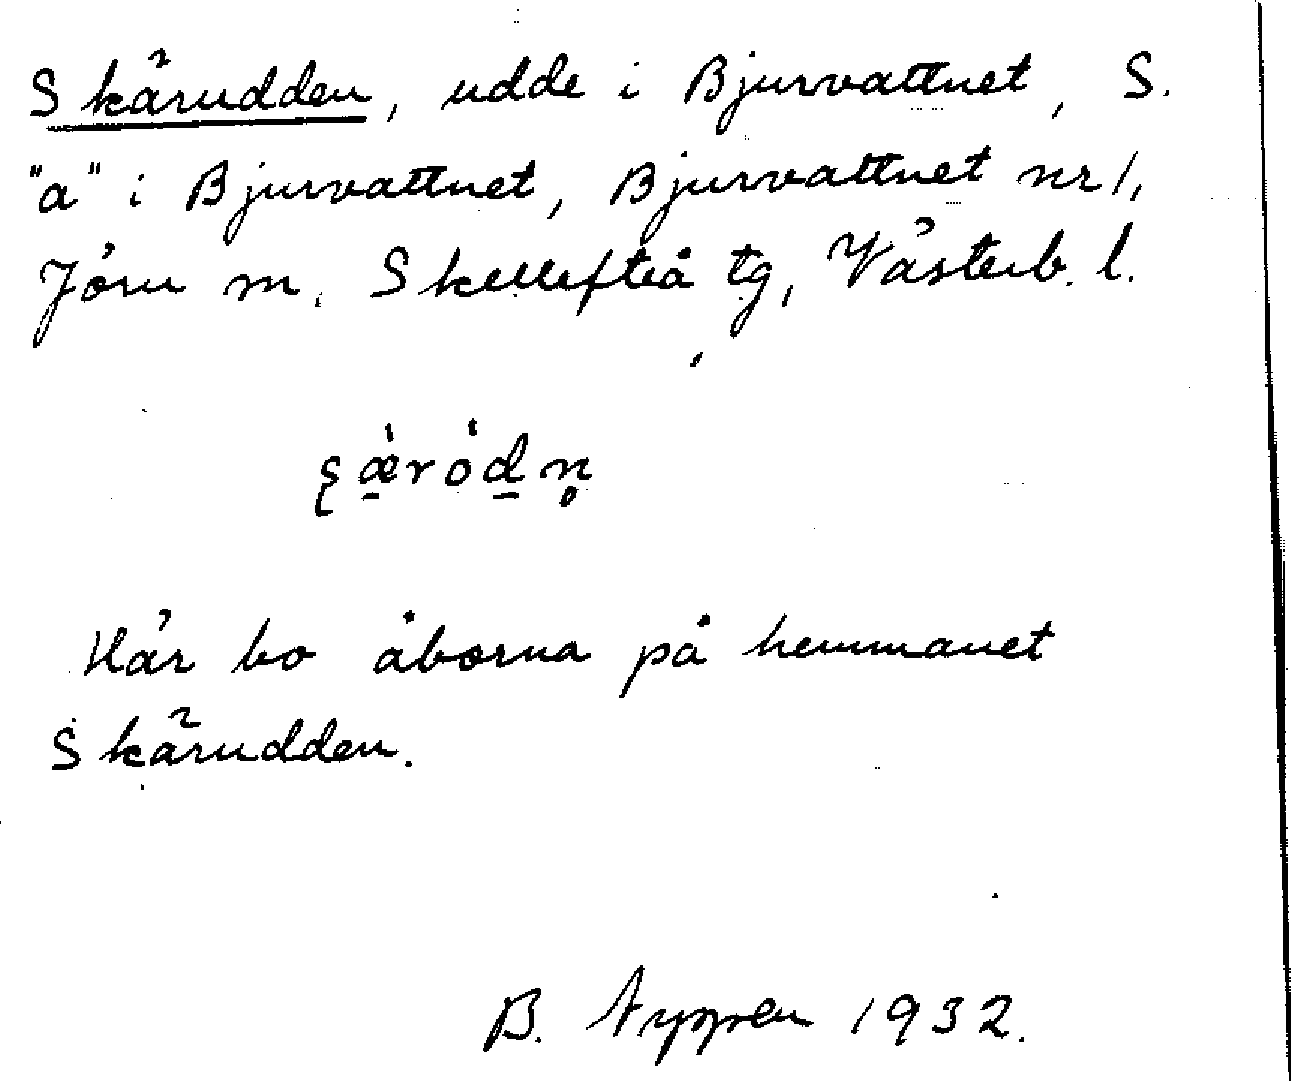 Skärudden, udde i Bjurvattnet, S.
"a" i Bjurvattnet, Bjurvattnet nr 1,
Jörn sn, Skellefteå tg, Västerb. l.
ʂæ̀ròdn̥
Här bo åborna på hemmanet
Skärudden.
B. 1932.